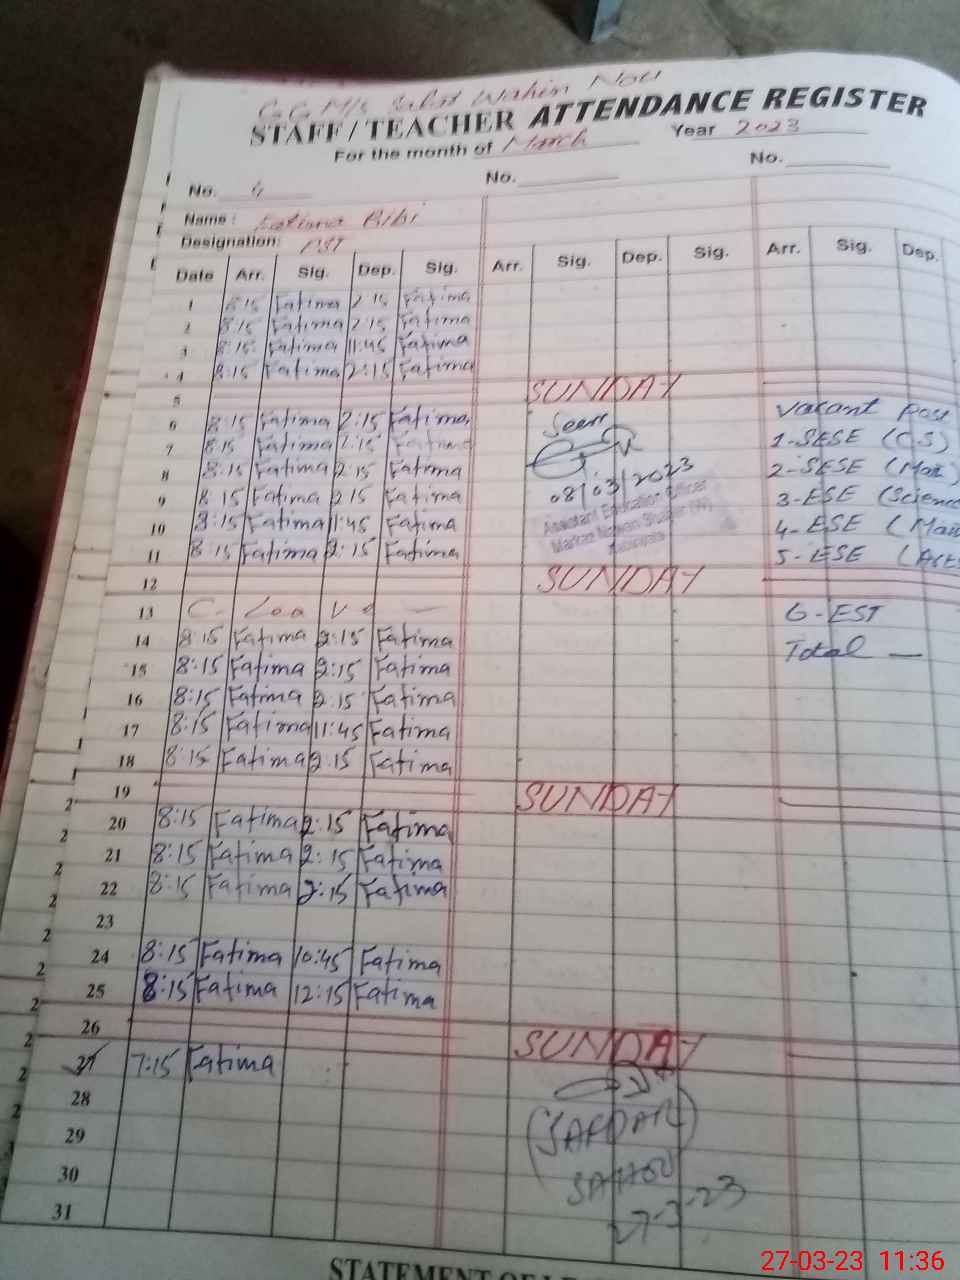 G.G.M/s Wahin Nou
STAFF / TEACHER ATTENDANCE REGISTER
For the month of March Year 2023
No. 4 No. No.
Name : Fatima Bibi
Designation: PST
Date Arr. Sig. Dep. Sig. Arr. Sig. Dep. Sig. Arr. Sig. Dep.
1 8:15 Fatima 2:15 Fatima
2 8:15 Fatima 2:15 Fatima
3 8:15 Fatima 11:45 Fatima
4 8:15 Fatima 2:15 Fatima
5 SUNDAY
6 8:15 Fatima 2:15 Fatima Seen Vacant Post
7 8:15 Fatima 2:15 Fatima 1-SESE (C.S)
8 8:15 Fatima 2:15 Fatima 2-SESE (Mat)
9 8:15 Fatima 2:15 Fatima 08/03/2023 3-ESE (Science
10 8:15 Fatima 11:45 Fatima Assistant Education Officer 4-ESE (Mat
11 8:15 Fatima 2:15 Fatima Markaz 5-ESE (Arts
12 SUNDAY
13 C. Leave — 6-EST
14 8:15 Fatima 2:15 Fatima Total —
15 8:15 Fatima 2:15 Fatima
16 8:15 Fatima 2:15 Fatima
17 8:15 Fatima 11:45 Fatima
18 8:15 Fatima 2:15 Fatima
19 SUNDAY
20 8:15 Fatima 2:15 Fatima
21 8:15 Fatima 2:15 Fatima
22 8:15 Fatima 2:15 Fatima
23
24 8:15 Fatima 10:45 Fatima
25 8:15 Fatima 12:15 Fatima
26 SUNDAY
27 7:15 Fatima
28
29 (SAFDAR)
30
31 27-3-23
STATEMENT OF
27-03-23 11:36